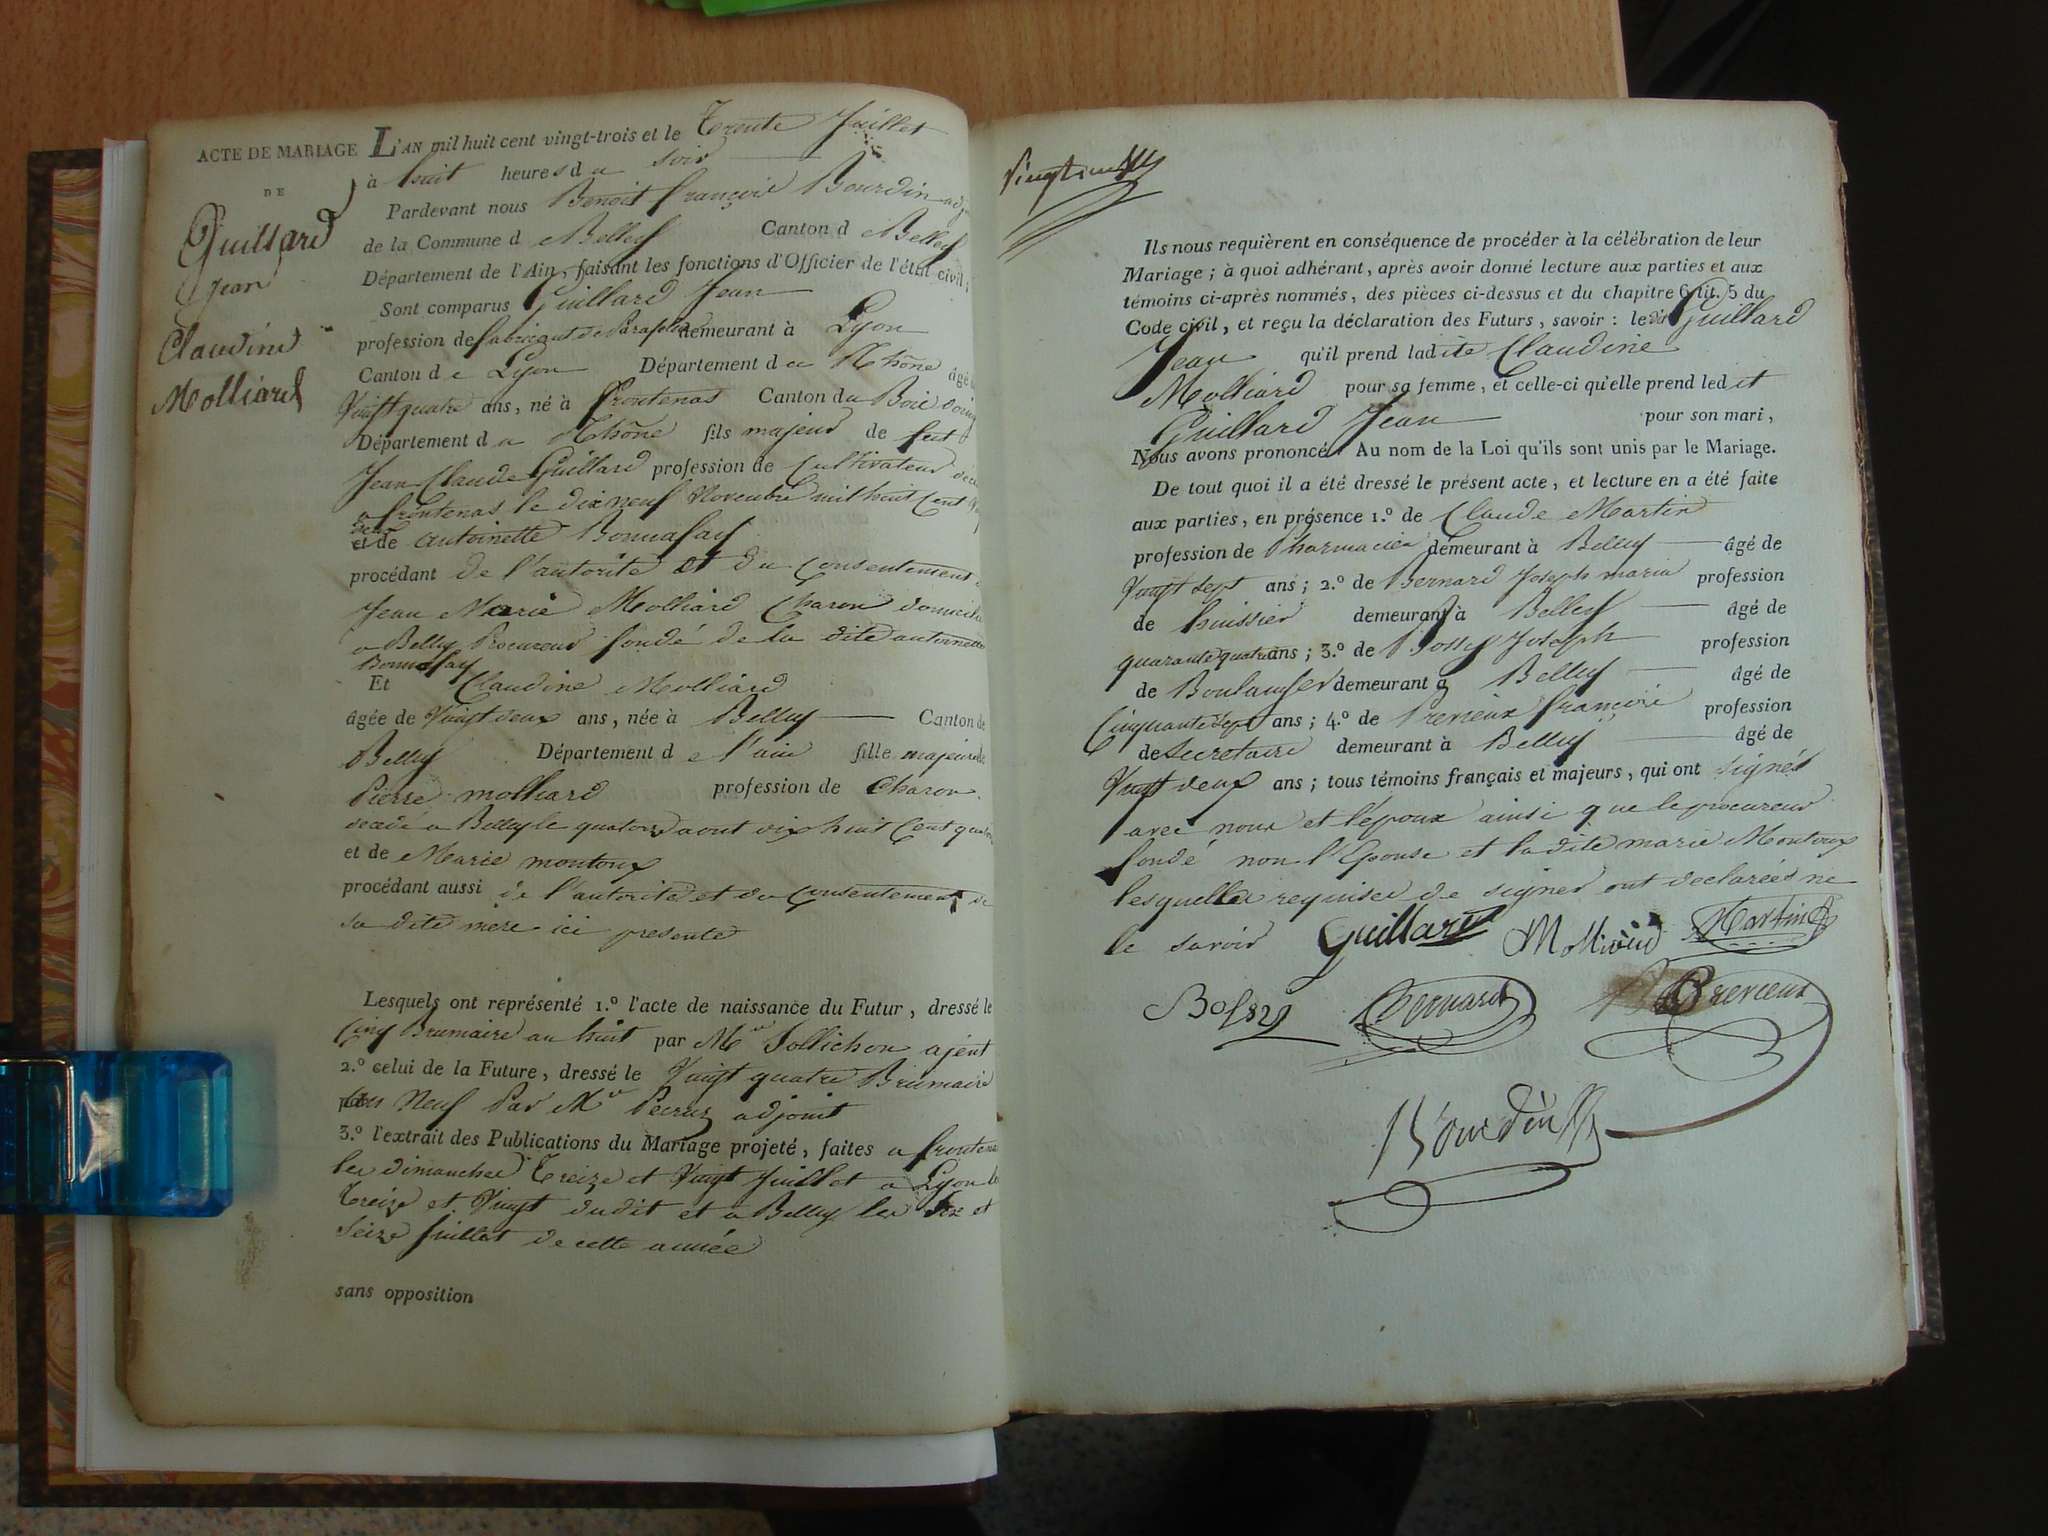 ACTE DE MARIAGE
DE
Guillard
Jean
Claudine
Molliard
L'AN mil huit cent vingt-trois et le Trente Juillet
à huit heures du soir
Pardevant nous Benoit françois Bourdin adj
de la Commune d Belley Canton d Belley
Département de l'Ain, faisant les fonctions d'Officier de l'état civil;
Sont comparus Guillard Jean
profession de fabricant de Parapluie demeurant à Lyon
Canton de Lyon Département du Rhône âgé
Vingt quatre ans, né à frontenas Canton du Bois d'oing
Département du Rhône fils majeur de feu
Jean Claude Guillard profession de Cultivateur
a frontenas le dix neuf Novembre mil huit Cent
et de antoinette Bonnafay
procédant de l'autorité et du Consentement
Jean Marie Molliard Charon domicilié
a Belley Procureur fondé de la dite antoinette
Bonnafay
Et Claudine Molliard
âgée de Vingt deux ans, née à Belley Canton de
Belley Département de l'ain fille majeure de
Pierre molliard profession de Charon
decedé a Belley le quatorze aout dix huit Cent
et de Marie montoux
procédant aussi de l'autorité et du Consentement de
sa dite mere ici presente
Lesquels ont représenté 1.º l'acte de naissance du Futur, dressé le
Cinq Brumaire an huit par Mr Sollichon ajent
2.º celui de la Future, dressé le Vingt quatre Brumaire
an Neuf Par Mr adjoint
3.º l'extrait des Publications du Mariage projeté, faites a frontenas
les dimanches Treize et Vingt Juillet a Lyon les
Treize et Vingt dudit et a Belley les Six et
Seize Juillet de cette année
sans opposition
Ils nous requièrent en conséquence de procéder à la célébration de leur
Mariage; à quoi adhérant, après avoir donné lecture aux parties et aux
témoins ci-après nommés, des pièces ci-dessus et du chapitre 6 tit. 5 du
Code civil, et reçu la déclaration des Futurs, savoir: le dit Guillard
Jean qu'il prend ladite Claudine
Molliard pour sa femme, et celle-ci qu'elle prend ledit
Guillard Jean pour son mari,
Nous avons prononcé: Au nom de la Loi qu'ils sont unis par le Mariage.
De tout quoi il a été dressé le présent acte, et lecture en a été faite
aux parties, en présence 1.º de Claude Martin
profession de Pharmacien demeurant à Belley âgé de
Vingt Sept ans; 2.º de Bernard Joseph marie profession
de huissier demeurant à Belley âgé de
quarante quatre ans; 3.º de Bossy Joseph profession
de Boulanger demeurant a Belley âgé de
Cinquante Sept ans; 4.º de Previeux françois profession
de Secretaire demeurant à Belley âgé de
Vingt deux ans; tous témoins français et majeurs, qui ont signés
avec nous et l'époux ainsi que le procureur
fondé non l'Epouse et la dite marie Montoux
lesquelles requises de signer ont declarées ne
le savoir Guillard Molliard Martin
Bossy Bernard Previeux
Bourdin